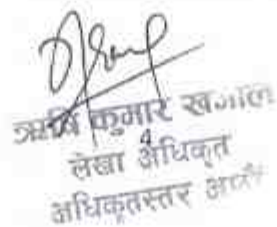 ऋषि कुमार खनाल
4
लेखा अधिकृत
अधिकृतस्तर आठौं